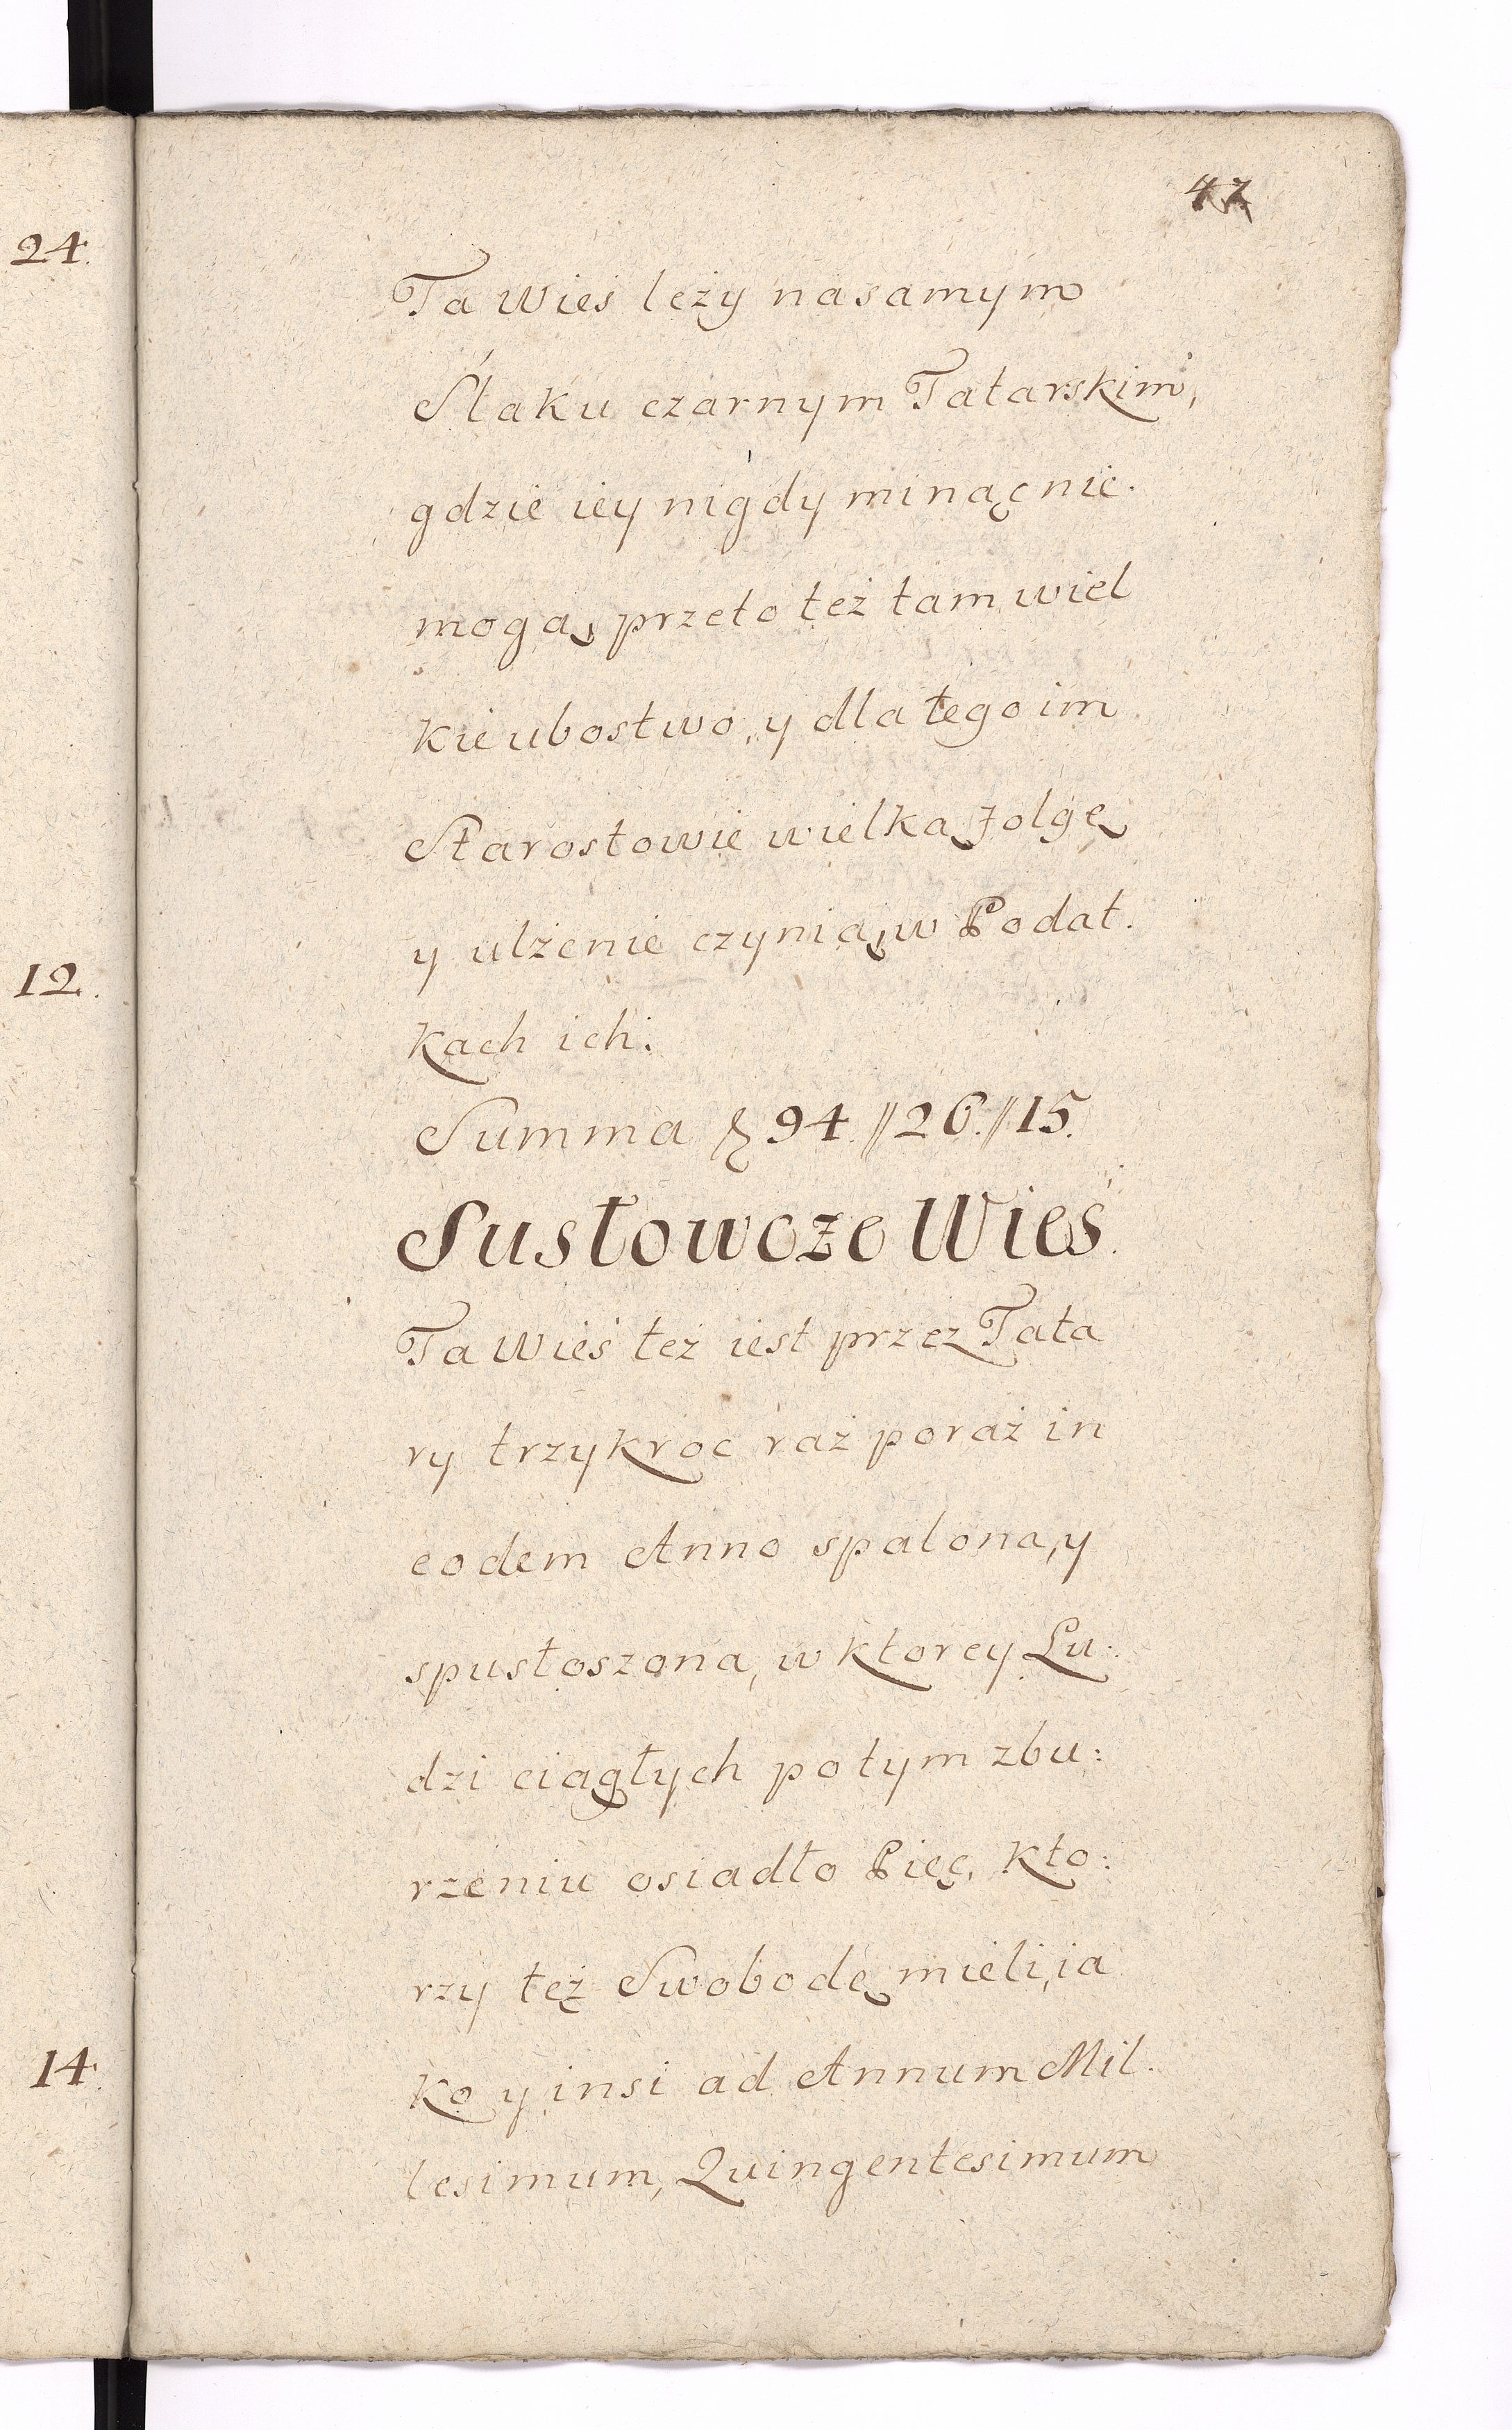 24.
12.
14.
47
Ta Wieś leży na samym
Słaku czarnym Tatarskim,
gdzie iey nigdy minąc nie.
mogą, przeto też tam wiel
kie ubostwo, y dla tego im
Starostowie wielką folgę
y ulżenie czynią, w Podat.
kach ich.
Summa 94.//26.//15.
Susłowcze Wieś.
Ta Wieś też iest przez Tata
ry trzykroc raz poraz in
eodem Anno spalona, y
spustoszona, w ktorey Lu:
dzi ciągłych po tym zbu:
rzeniu osiadło Pięc, kto:
rzy też Swobodę mieli, ia
ko y insi ad Annum Mil.
lesimum, Quingentesimum